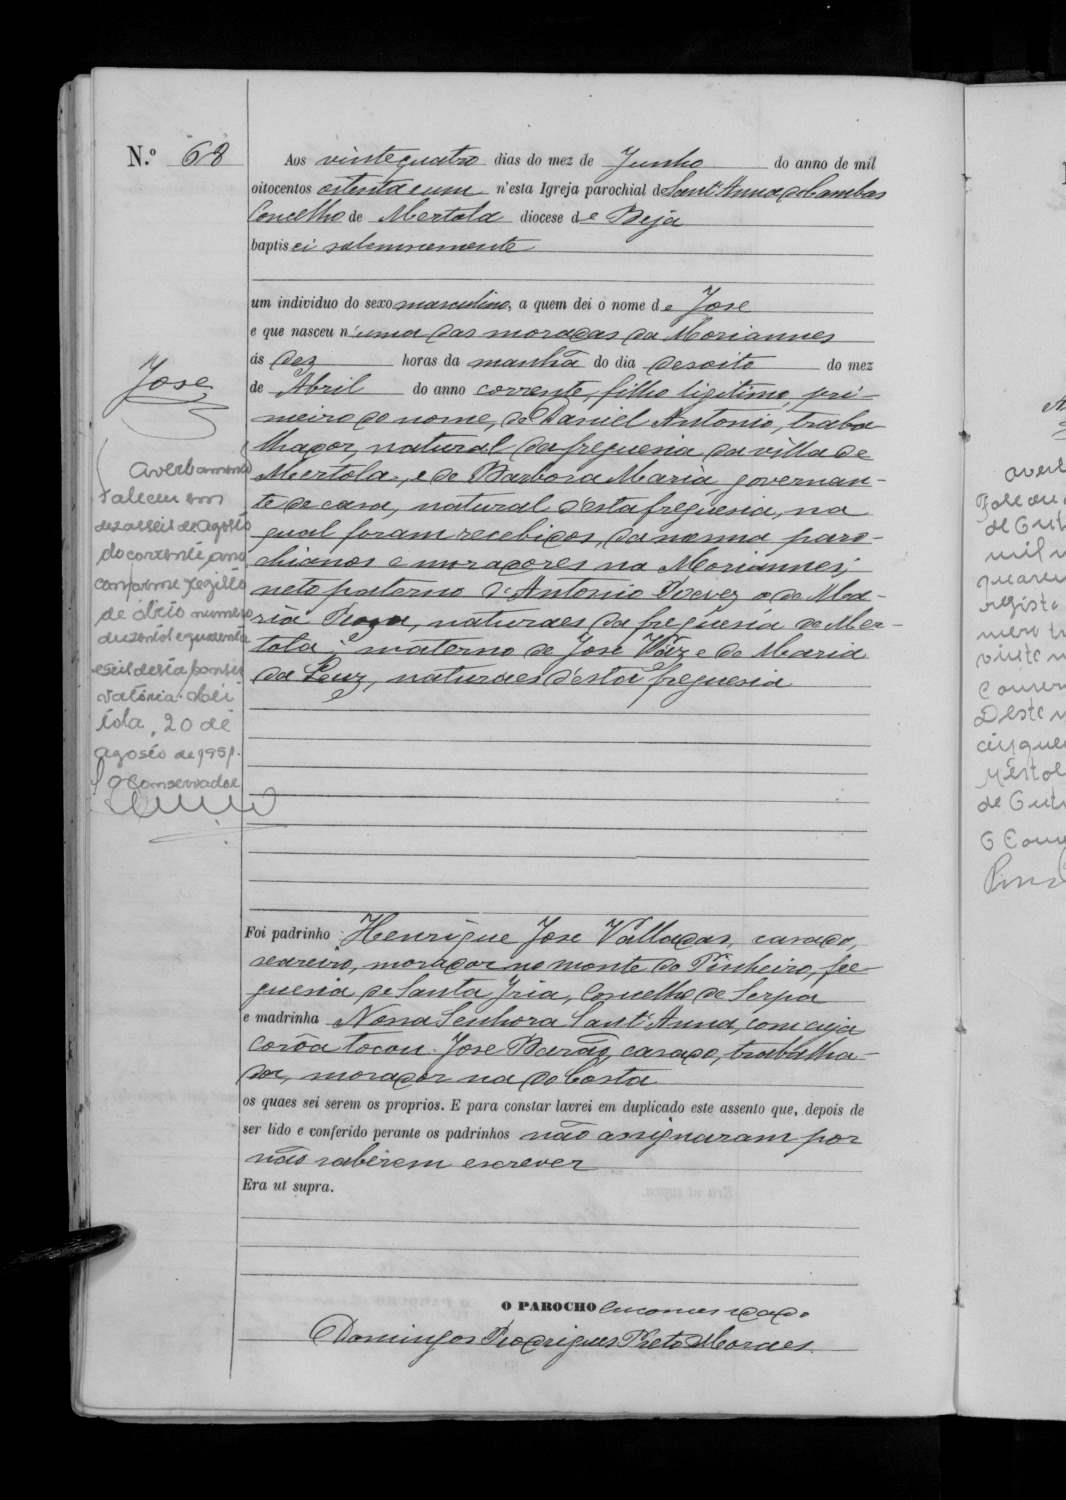 N.º 68
Aos vinte quatro dias do mez de Junho do anno de mil
oitocentos oitenta e um n'esta Igreja parochial de Sant'Anna de Cambas
Concelho de Mertola diocese de Beja
baptisei solemnemente
um individuo do sexo masculino, a quem dei o nome de Jose
e que nasceu n'uma das moradas da Moriannes
ás dez horas da manhã do dia desoito do mez
de Abril do anno corrente, filho ligitimo, pri-
meiro do nome, de Daniel Antonio, traba
lhador, natural da freguesia da villa de
Mertola, e de Barbora Maria, governan-
te de casa, natural d'esta freguesia, na
qual foram recebidos, da mesma paro-
chianos e moradores na Moriannes;
neto paterno d'Antonio e de Ma-
ria Roza, naturaes da freguesia de Mer-
tola; e materno de Jose Vaz e de Maria
da Luz, naturaes d'esta freguesia
Jose
Averbamento
Faleceu em
dezasseis de agosto
do corrente ano
conforme registo
de óbito numero
duzentos e quarenta
e seis desta conser
vatória. Mér
tola, 20 de
agosto de 1951.
O Conservador
Foi padrinho Henrique Jose Valladas, casado,
seareiro, morador no monte do Pinheiro, fre-
guesia de Santa Iria, Concelho de Serpa
e madrinha Nossa Senhora Sant'Anna, com cuja
corôa tocou Jose Barão, casado, trabalha-
dor, morador na do Costa
os quaes sei serem os proprios. E para constar lavrei em duplicado este assento que, depois de
ser lido e conferido perante os padrinhos não assignaram por
não saberem escrever
Era ut supra.
O PAROCHO encomendado
Domingos Rodrigues Preto Moraes